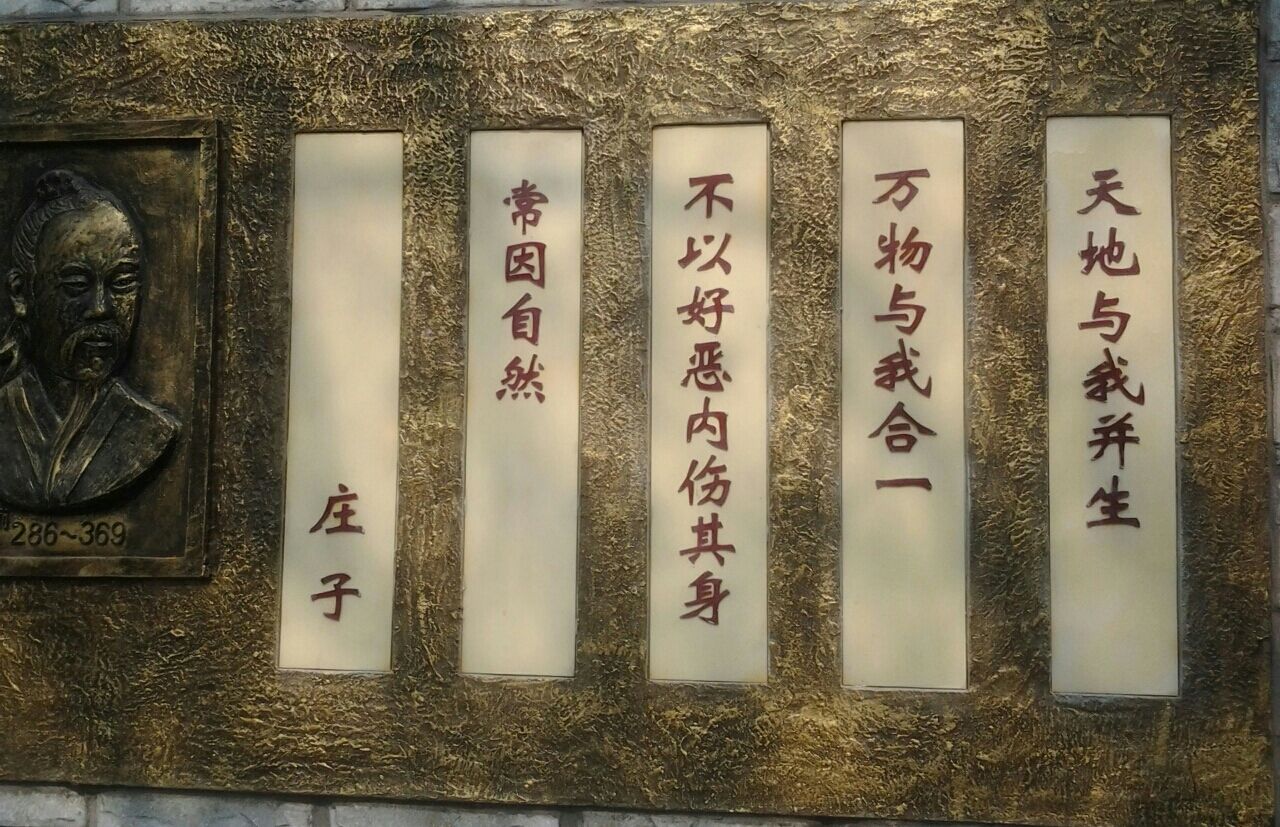 天地与我并生
万物与我合一
不以好恶内伤其身
常因自然
庄子
286~369